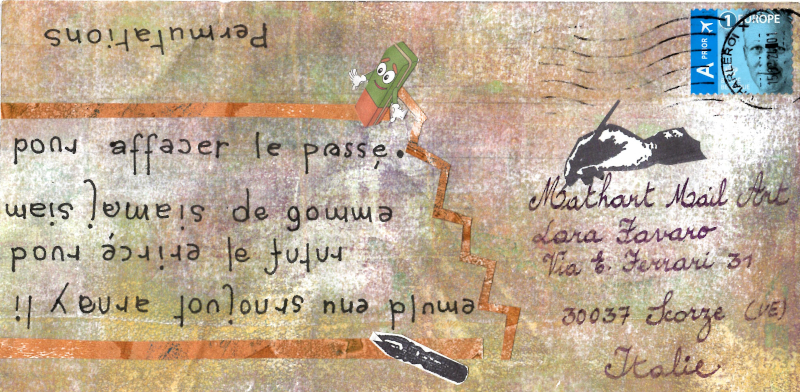 Permutations
il y aura toujours une plume
pour écrire le futur
mais jamais de gomme
pour effacer le passé.
A PRIOR
1 EUROPE
CHARLEROI X
Mathart Mail Art
Lara Favaro
Via E. Ferrari 31
30037 Scorze (VE)
Italie